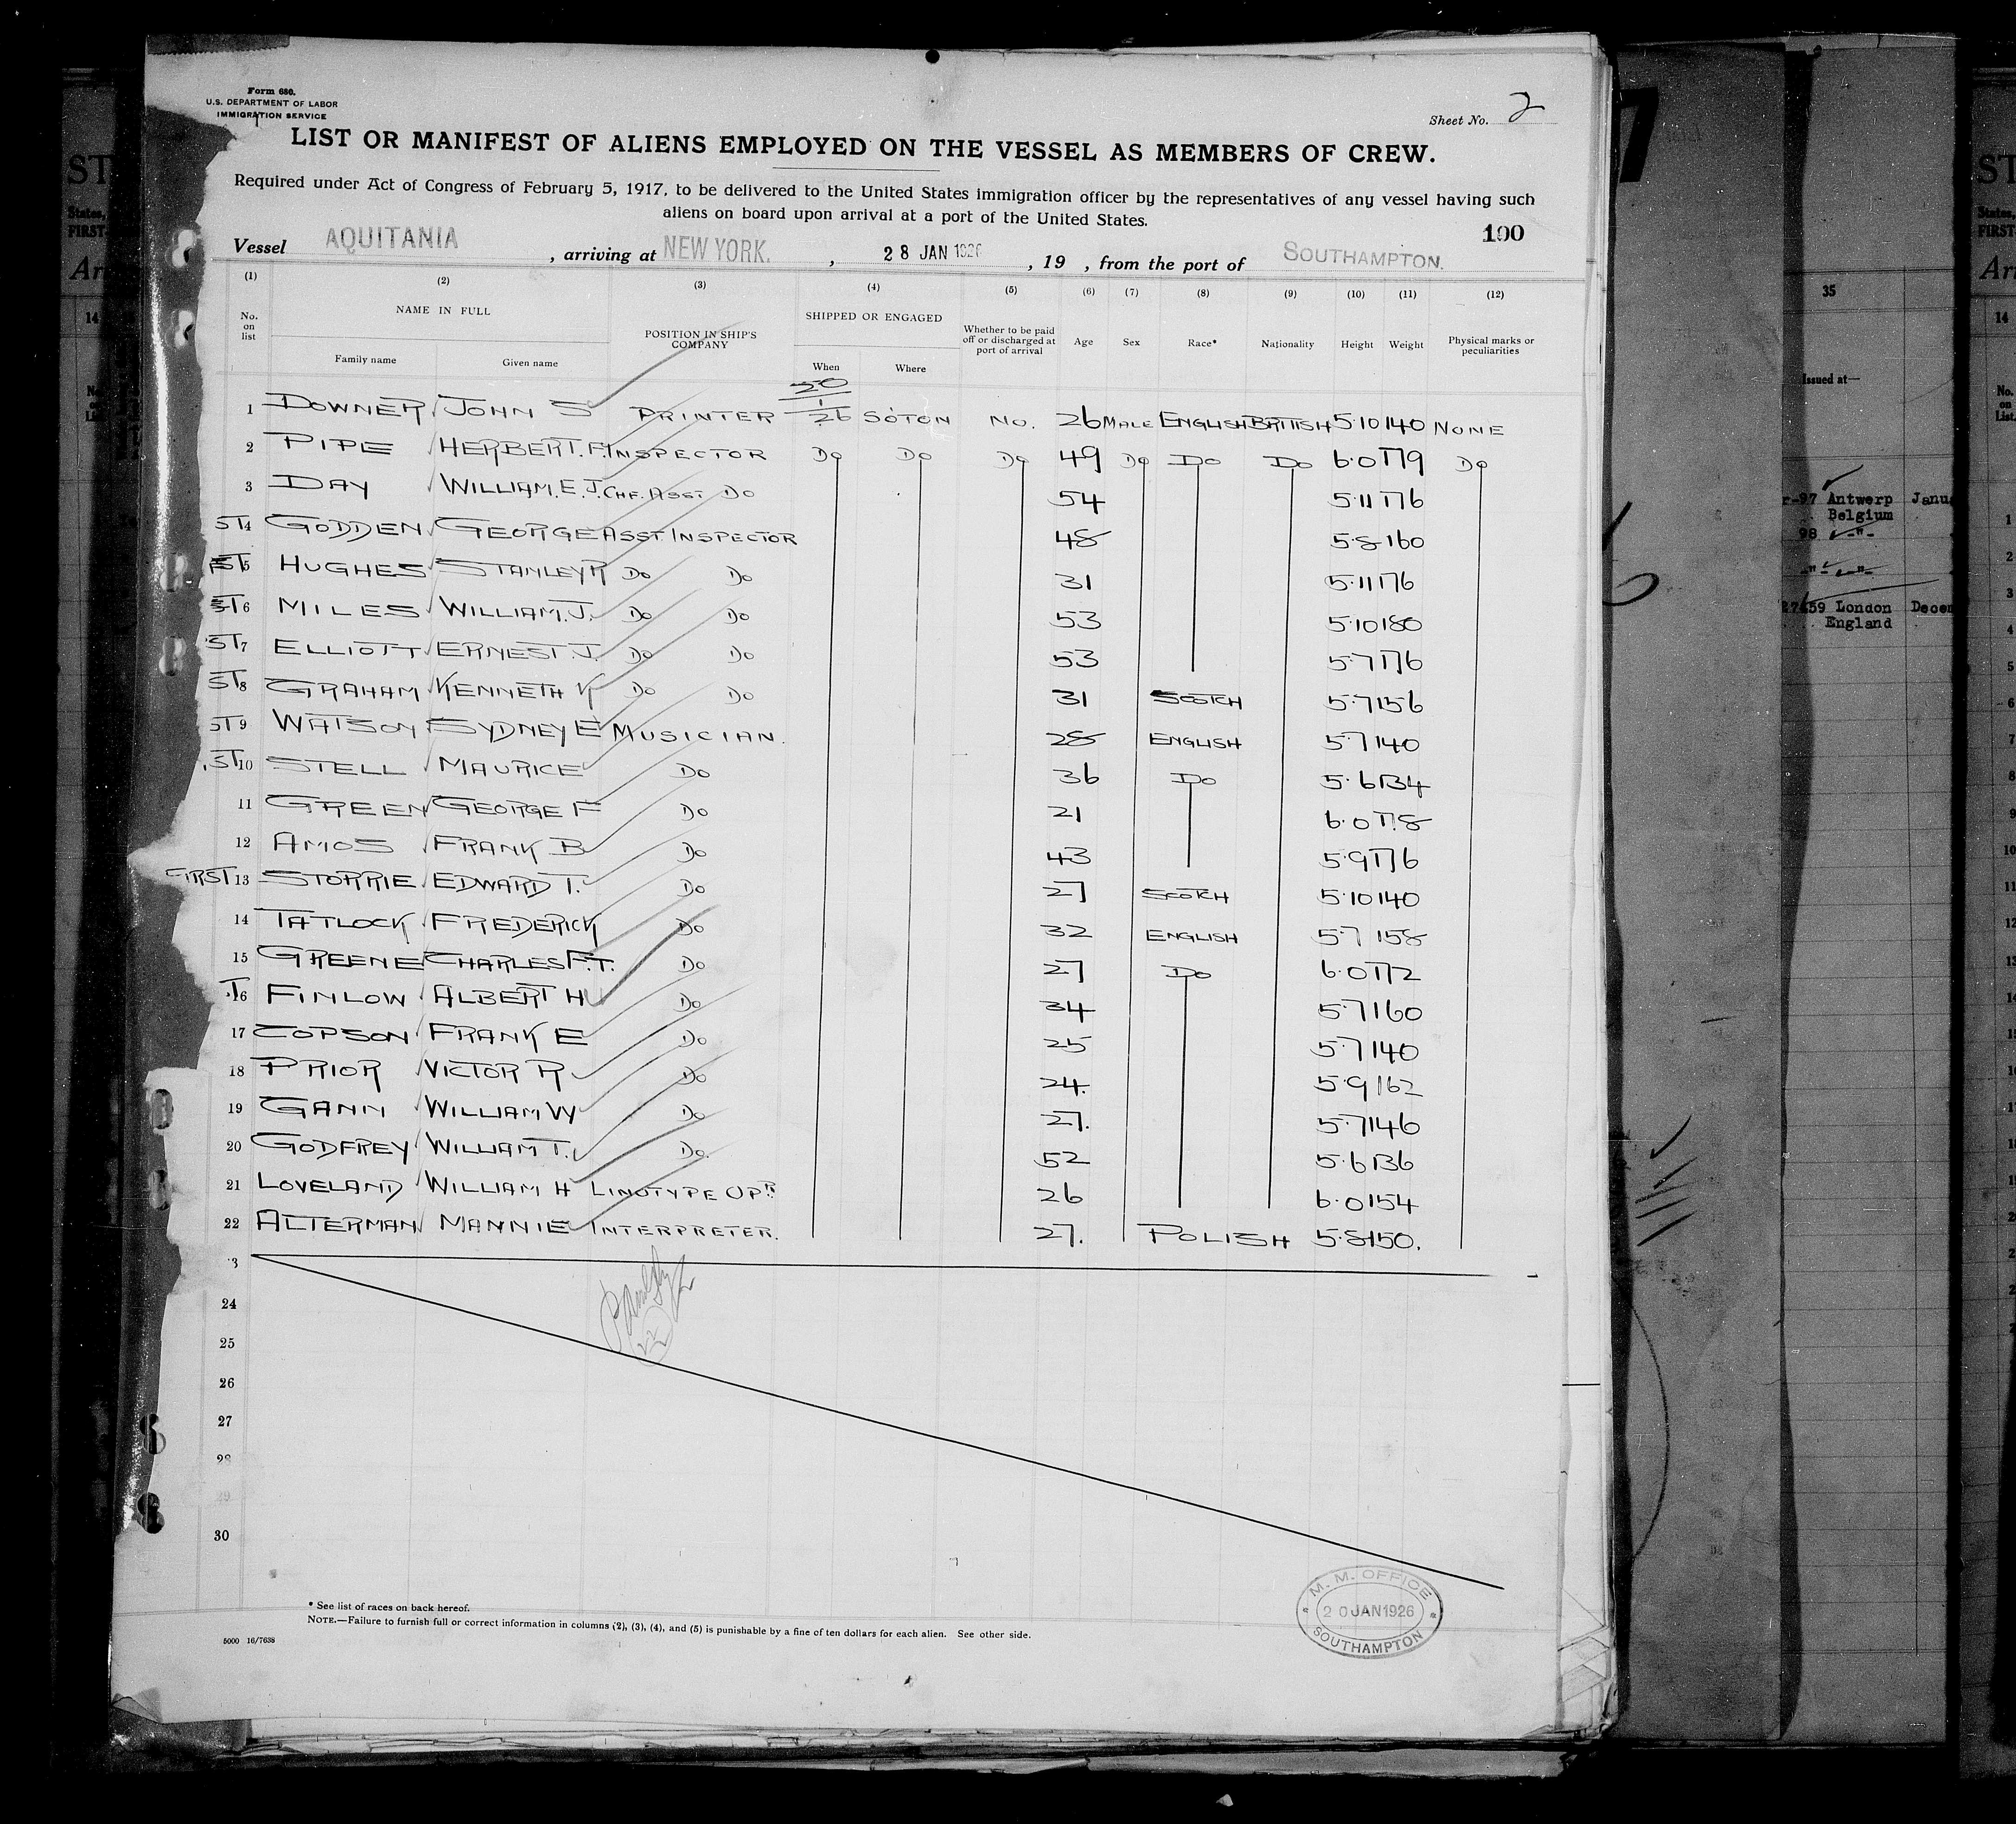 Form 680.
U.S. DEPARTMENT OF LABOR
IMMIGRATION SERVICE
Sheet No. 2
LIST OR MANIFEST OF ALIENS EMPLOYED ON THE VESSEL AS MEMBERS OF CREW.
Required under Act of Congress of February 5, 1917, to be delivered to the United States immigration officer by the representatives of any vessel having such
aliens on board upon arrival at a port of the United States.
100
Vessel AQUITANIA, arriving at NEW YORK., 28 JAN 1926, 19 , from the port of SOUTHAMPTON.
(1) (2) (3) (4) (5) (6) (7) (8) (9) (10) (11) (12)
No. on list NAME IN FULL Family name Given name POSITION IN SHIP'S COMPANY SHIPPED OR ENGAGED When Where Whether to be paid off or discharged at port of arrival Age Sex Race* Nationality Height Weight Physical marks or peculiarities
1 DOWNER JOHN S PRINTER 20/1/26 SOTON NO. 26 MALE ENGLISH BRITISH 5.10 140 NONE
2 PIPE HERBERT.F. INSPECTOR DO DO DO 49 DO DO DO 6.0 179 DO
3 DAY WILLIAM.E.J. CHF.ASST DO 54 5.11 176
ST 4 GODDEN GEORGE ASST INSPECTOR 48 5.8 160
ST 5 HUGHES STANLEY R DO DO 31 5.11 176
ST 6 MILES WILLIAM.J. DO DO 53 5.10 180
ST 7 ELLIOTT ERNEST.J. DO DO 53 5.7 176
ST 8 GRAHAM KENNETH K DO DO 31 SCOTCH 5.7 156
ST 9 WATSON SYDNEY E MUSICIAN. 28 ENGLISH 5.7 140
ST 10 STELL MAURICE DO 36 DO 5.6 134
11 GREEN GEORGE F DO 21 6.0 178
12 AMOS FRANK B DO 43 5.9 176
FIRST 13 STORRIE EDWARD T. DO 27 SCOTCH 5.10 140
14 TATLOCK FREDERICK DO 32 ENGLISH 5.7 158
15 GREENE CHARLES F.T. DO 27 DO 6.0 172
T 16 FINLOW ALBERT H DO 34 5.7 160
17 COPSON FRANK E DO 25 5.7 140
18 PRIOR VICTOR R DO 24. 5.9 162
19 GANN WILLIAM W DO 27. 5.7 146
20 GODFREY WILLIAM T. DO. 52 5.6 136
21 LOVELAND WILLIAM H LINOTYPE OPR 26 6.0 154
22 ALTERMAN MANNIE INTERPRETER. 27. POLISH 5.8 150.
3
24
25
26
27
28
29
30
22
M. M. OFFICE
20 JAN 1926
SOUTHAMPTON
* See list of races on back hereof.
NOTE.—Failure to furnish full or correct information in columns (2), (3), (4), and (5) is punishable by a fine of ten dollars for each alien. See other side.
5000 16/7638
35
Issued at—
Antwerp
Belgium
98
London
England